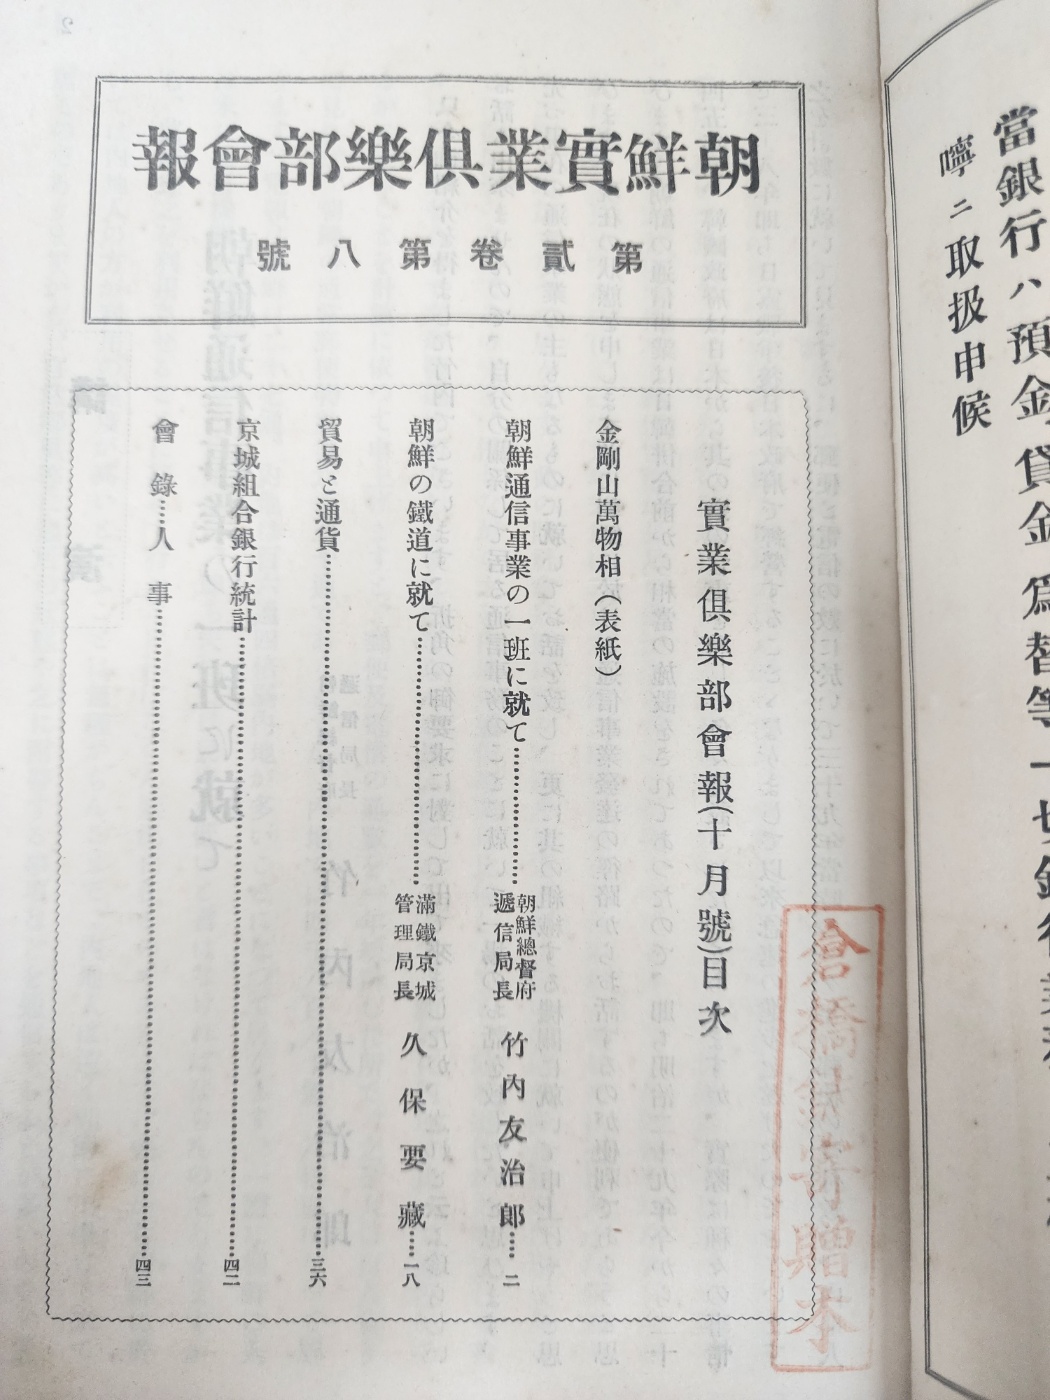 當銀行ハ預金、貸金、爲替等一切銀行業
嚀ニ取扱申候
朝鮮實業俱樂部會報
第貳卷第八號
實業俱樂部會報(十月號)目次
金剛山萬物相(表紙)
朝鮮通信事業の一班に就て………朝鮮總督府遞信局長 竹內友治郎……二
朝鮮の鐵道に就て………滿鐵京城管理局長 久保要藏……一八
貿易と通貨………三六
京城組合銀行統計………四二
會錄……人事………四三
贈本